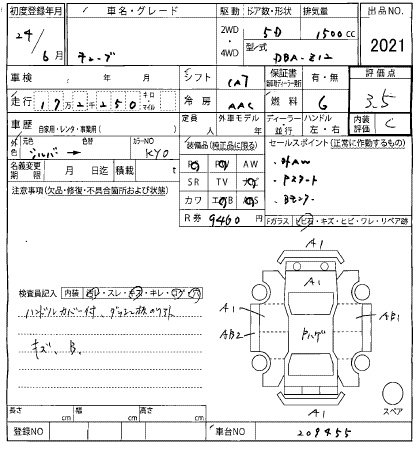 初度登録年月 車名・グレード 駆動 ドア数・形状 排気量 出品NO.
24 2WD 5D 1500cc
6月 キューブ 4WD 型/式 DBA-Z12 2021
車検 年 月 シフト CAT 保証書 有・無 評価点
走行 17万2千250 キロ マイル 冷房 AAC 燃料 G 3.5
車歴 自家用・レンタ・事業用( ) 定員 人 外車モデル 年 ディーラー 並行 ハンドル 左・右 内装評価 C
外色 元色 シルバー → 色替 カラーNO KY0
装備品(純正品に限る) セールスポイント(正常に作動するもの)
名義変更期限 月 日迄 積載 t
PS PW AW
SR TV ナビ
カワ エアB ABS
外AW
Pスタート
Bセンサー
注意事項(欠品・修復・不具合箇所および状態)
R券 9460円 Fガラス 飛石・キズ・ヒビ・ワレ・リペア跡
A1
A1
検査員記入 内装 汚レ・スレ・キズ・キレ・コゲ・穴
ハンドルカバー付、
キズ、B.
A1 AB1
AB2 Pハゲ
A1
スペア
長さ cm 幅 cm 高さ cm
登録NO 車台NO 209455